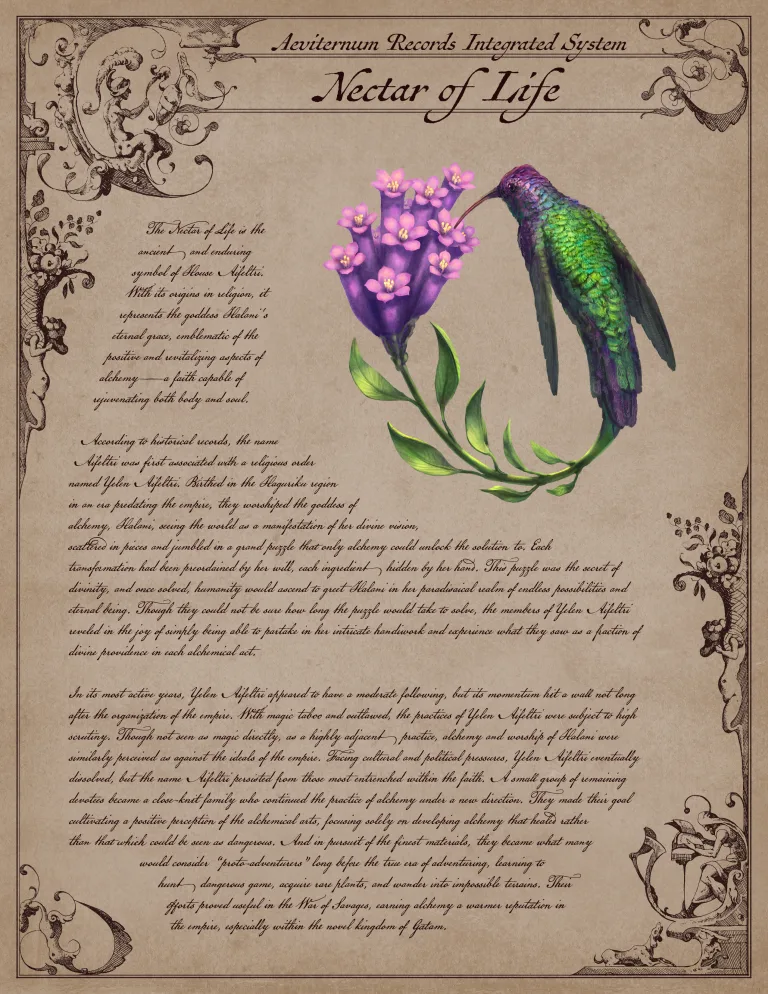 Aeviternum Records Integrated System
Nectar of Life
The Nectar of Life is the
ancient and enduring
symbol of House Aifeltri.
With its origins in religion, it
represents the goddess Halani's
eternal grace, emblematic of the
positive and revitalizing aspects of
alchemy—a faith capable of
rejuvenating both body and soul.
According to historical records, the name
Aifeltri was first associated with a religious order
named Yelen Aifeltri. Birthed in the Haguriku region
in an era predating the empire, they worshiped the goddess of
alchemy, Halani, seeing the world as a manifestation of her divine vision,
scattered in pieces and jumbled in a grand puzzle that only alchemy could unlock the solution to. Each
transformation had been preordained by her will, each ingredient hidden by her hand. This puzzle was the secret of
divinity, and once solved, humanity would ascend to greet Halani in her paradisaical realm of endless possibilities and
eternal being. Though they could not be sure how long the puzzle would take to solve, the members of Yelen Aifeltri
reveled in the joy of simply being able to partake in her intricate handiwork and experience what they saw as a fraction of
divine providence in each alchemical act.
In its most active years, Yelen Aifeltri appeared to have a moderate following, but its momentum hit a wall not long
after the organization of the empire. With magic taboo and outlawed, the practices of Yelen Aifeltri were subject to high
scrutiny. Though not seen as magic directly, as a highly adjacent practice, alchemy and worship of Halani were
similarly perceived as against the ideals of the empire. Facing cultural and political pressures, Yelen Aifeltri eventually
dissolved, but the name Aifeltri persisted from those most entrenched within the faith. A small group of remaining
devotees became a close-knit family who continued the practice of alchemy under a new direction. They made their goal
cultivating a positive perception of the alchemical arts, focusing solely on developing alchemy that heals rather
than that which could be seen as dangerous. And in pursuit of the finest materials, they became what many
would consider "proto-adventurers" long before the true era of adventuring, learning to
hunt dangerous game, acquire rare plants, and wander into impossible terrains. Their
efforts proved useful in the War of Savages, earning alchemy a warmer reputation in
the empire, especially within the novel kingdom of Gatam.